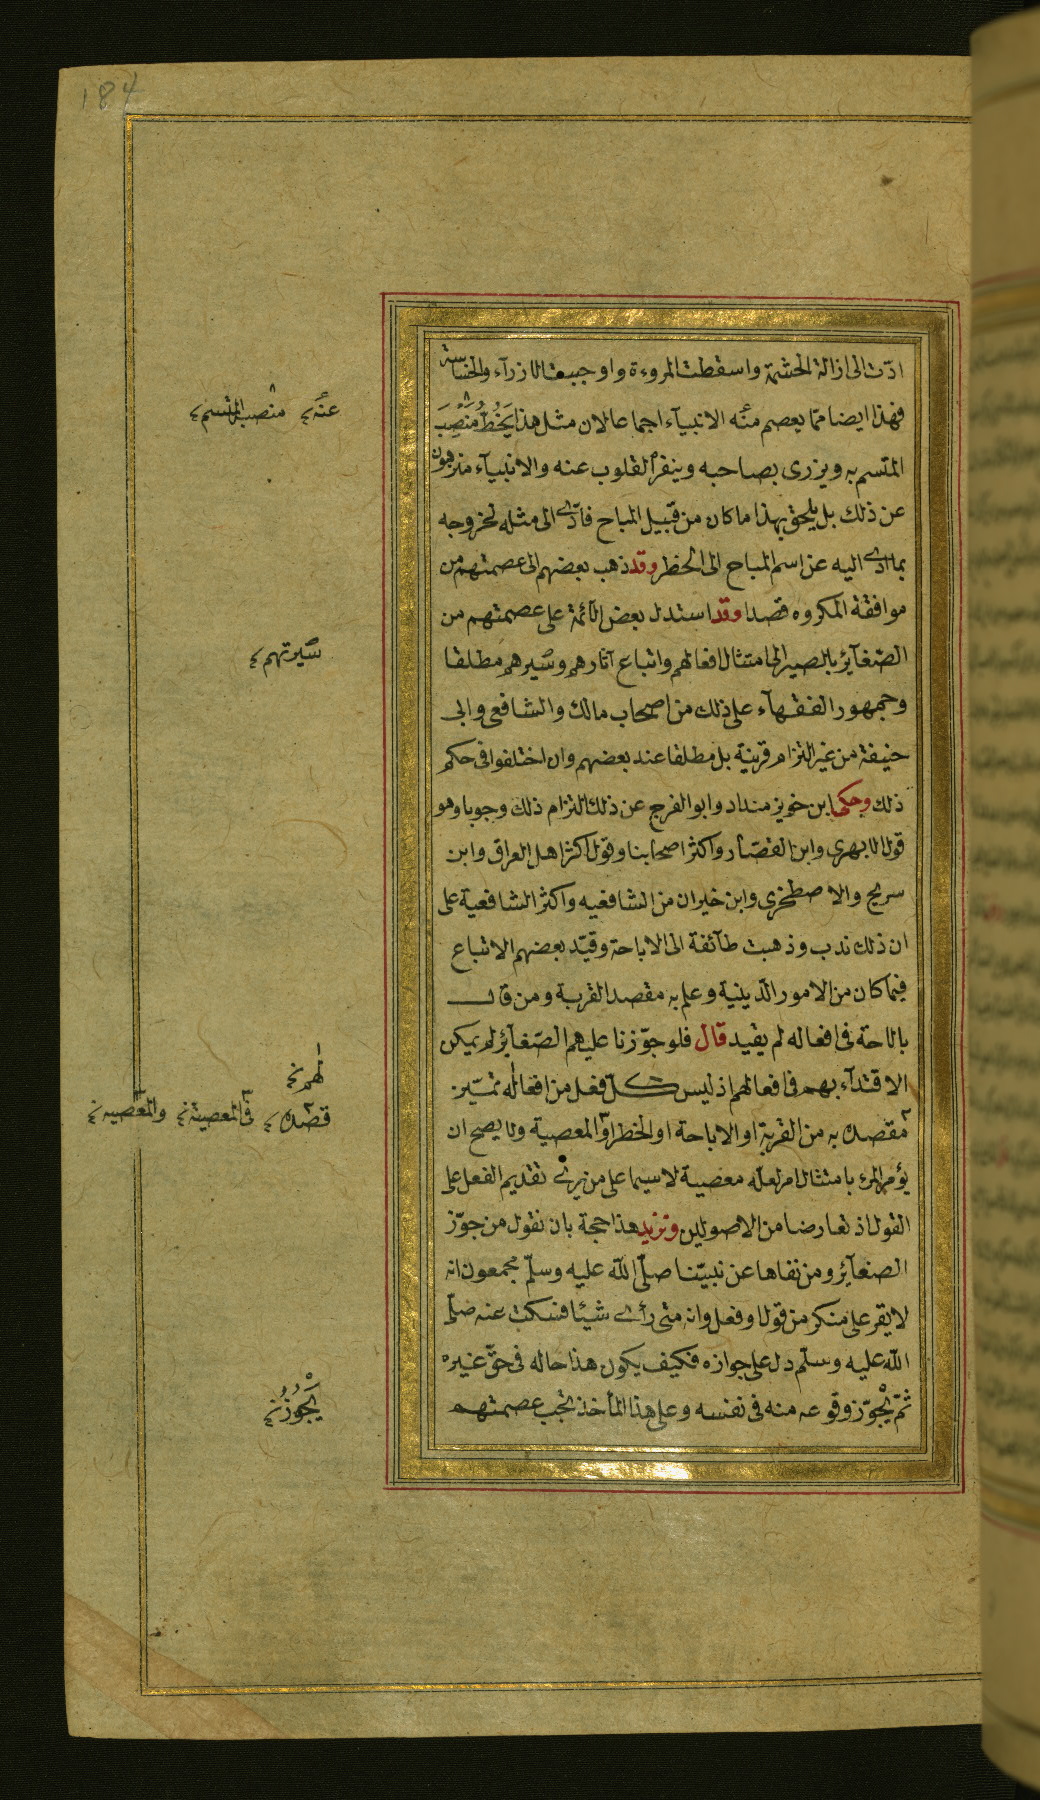 184
ادّت الى ازالة الحشمة واسقطت المروءة واوجبت الازرآء والخساسة
فهذا ايضا ممّا يعصم منه الانبيآء اجماعا لان مثل هذا يَحُطُّ مَنْصِبَ
المتسم به ويزرى بصاحبه وينفر القلوب عنه والانبيآء منزهون
عن ذلك بل يلحق بهذا ما كان من قبيل المباح فادّى الى مثله لخروجه
بما ادى اليه عن اسم المباح الى الحظر وقد ذهب بعضهم الى عصمتهم من
موافقة المكروه قصدا وقد استدل بعض الائمة على عصمتهم من
الصّغآئر بالمصير الى امتثال افعالهم واتباع آثارهم وسيرهم مطلقا
وجمهور الفقهآء على ذلك من اصحاب مالك والشافعى وابى
حنيفة من غير التزام قرينة بل مطلقا عند بعضهم وان اختلفوا فى حكم
ذلك وحكى ابن خويز منداد وابو الفرج عن ذلك التزام ذلك وجوبا وهو
قول الابهرى وابن القصّار واكثر اصحابنا وقول اكثر اهل العراق وابن
سريج والاصطخرى وابن خيران من الشافعيه واكثر الشافعية على
ان ذلك ندب وذهبت طآئفة الى الاباحة وقيّد بعضهم الاتباع
فيما كان من الامور الدّينية وعلم به مقصد القربة ومن قال
بالاحة فى افعاله لم يقيد قال فلو جوّزنا عليهم الصّغآئر لم يمكن
الاقتدآء بهم فى افعالهم اذ ليس كلّ فعل من افعاله تميّز
مقصده به من القربة او الاباحة او الحظر او المعصية ولا يصح ان
يؤمر المرء بامتثال امر لعله معصية لا سيما على من يرى تقديم الفعل على
القول اذ تعارضا من الاصولين ونزيد هذا حجة بان نقول من جوّز
الصغآئر ومن نفاها عن نبيّنا صلّى اللّه عليه وسلّم مجمعون انه
لا يقر على منكر من قول او فعل وانه متى رأى شيئا فسكت عنه صلّى
اللّه عليه وسلّم دل على جوازه فكيف يكون هذا حاله فى حقّ غيره
ثمّ يجوّز وقوعه منه فى نفسه وعلى هذا المأخذ تجب عصمتهم
عنه
منصب المتسم
سيرتهم
لهم
قصده
فى المعصية
والمعصيه
يَجُوزُ